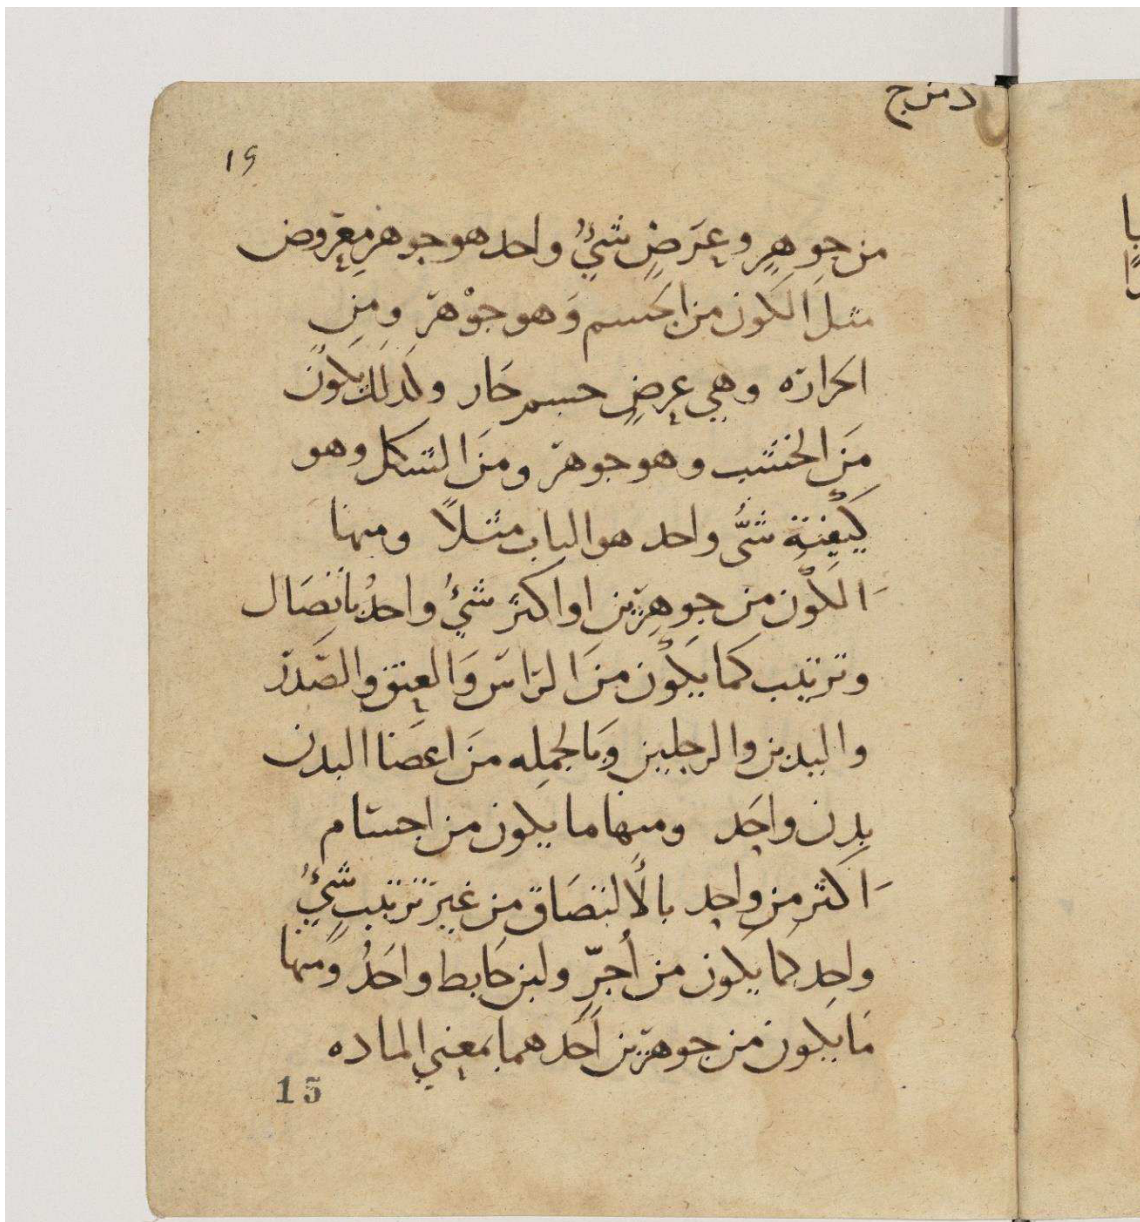 د من ج
١٥
من جوهرٍ وعَرَضٍ شيءٌ واحد هو جوهر معروض
مثل الكون من الجسم وَهو جوْهر ومن
الحراره وهي عرضٍ جسم حَار ولذلك يكون
مَن الخشب وهو جوهر ومن الشكل وهو
كَيْفية شىُّ واحد هو الباب مثلاً ومنها
الكْون من جوهرين او اكثر شيءُ واحدُ باتصَال
وترتيب كما يكْون من الراس وَالعنق والصَّدر
واليدين والرجلين وَبالجمله مَن اعضَا البدن
بدن واحَد ومنها ما يكون من اجسام
اكثر من واحد بالألتصَاق من غير ترتيب شيءُ
واحد كما يكون من أجرّ ولبن حَايط واحَدُ ومنها
مَا يكون من جوهرين أحَدهما بمعني الماده
15